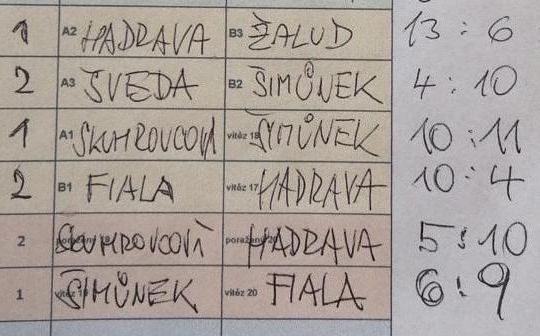 1 A2 HADRAVA B3 ŽALUD 13 : 6
2 A3 ŠVEDA B2 ŠIMŮNEK 4 : 10
1 A1 SKUHROVCOVÁ vítěz 18 ŠIMŮNEK 10 : 11
2 B1 FIALA vítěz 17 HADRAVA 10 : 4
2 HADRAVA 5 : 10
1 ŠIMŮNEK vítěz 20 FIALA 6 : 9